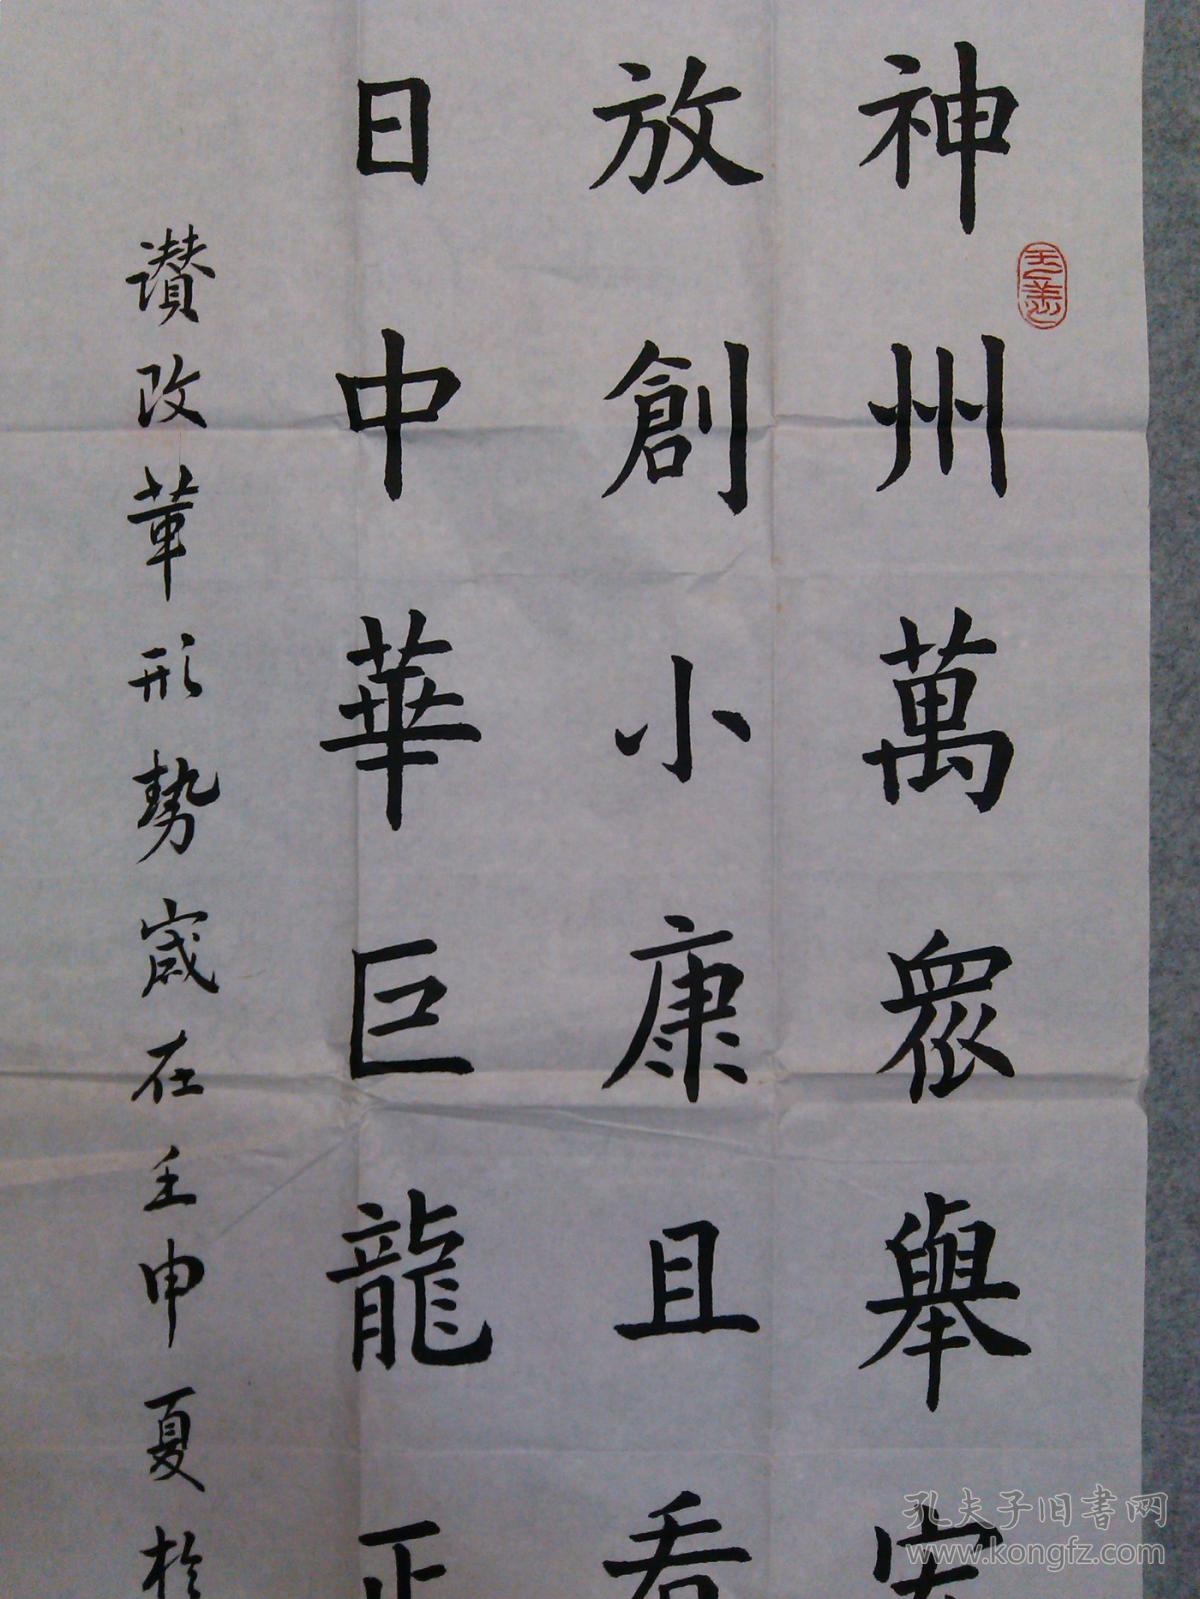 神州萬眾舉宏
放創小康且看
日中華巨龍正
讃改革形势歲在壬申夏於
孔夫子旧书网
www.kongfz.com